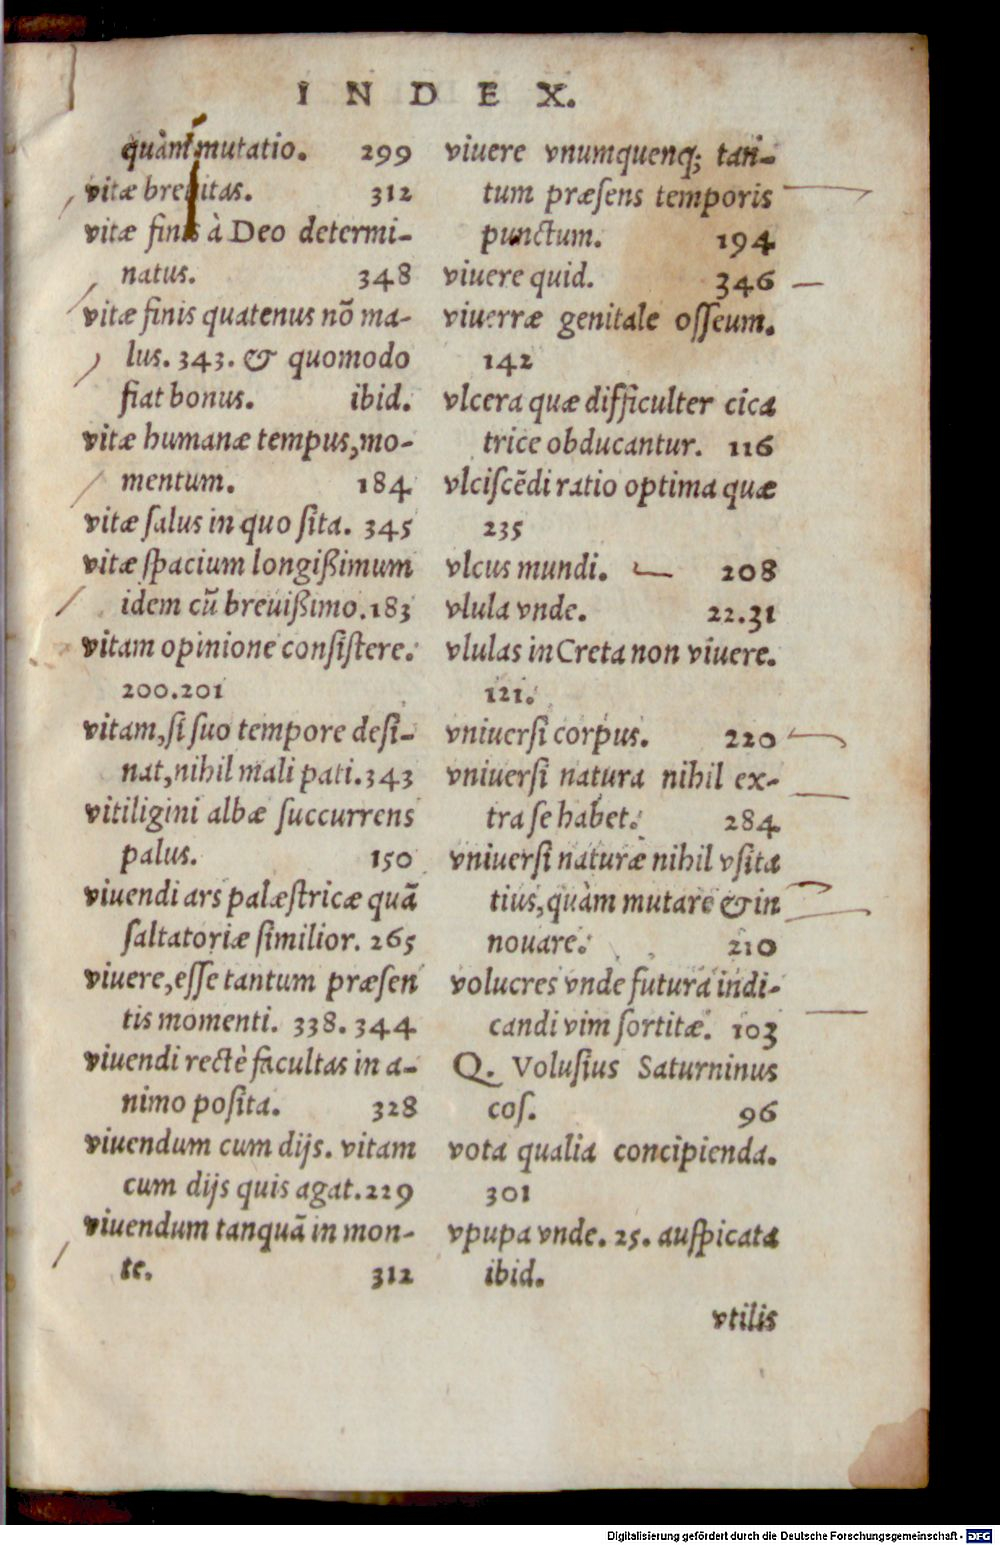 INDEX.
quàm mutatio. 299
vitæ breuitas. 312
vitæ finis à Deo determi-
natus. 348
vitæ finis quatenus nõ ma-
lus. 343. & quomodo
fiat bonus. ibid.
vitæ humanæ tempus, mo-
mentum. 184
vitæ ſalus in quo ſita. 345
vitæ ſpacium longißimum
idem cũ breuißimo. 183
vitam opinione conſiſtere.
200.201
vitam, ſi ſuo tempore deſi-
nat, nihil mali pati. 343
vitiligini albæ ſuccurrens
palus. 150
viuendi ars palæſtricæ quã
ſaltatoriæ ſimilior. 265
viuere, eſſe tantum præſen
tis momenti. 338. 344
viuendi rectè facultas in a-
nimo poſita. 328
viuendum cum dijs. vitam
cum dijs quis agat. 229
viuendum tanquã in mon-
te. 312
viuere vnumquenq; tan-
tum præſens temporis
punctum. 194
viuere quid. 346
viuerræ genitale oſſeum.
142
vlcera quæ difficulter cica
trice obducantur. 116
vlciſcẽdi ratio optima quæ
235
vlcus mundi. 208
vlula vnde. 22.31
vlulas in Creta non viuere.
121.
vniuerſi corpus. 220
vniuerſi natura nihil ex-
tra ſe habet. 284
vniuerſi naturæ nihil vſita
tius, quàm mutare & in
nouare. 210
volucres vnde futura indi-
candi vim ſortitæ. 103
Q. Voluſius Saturninus
coſ. 96
vota qualia concipienda.
301
vpupa vnde. 25. auſpicata
ibid.
vtilis
Digitalisierung gefördert durch die Deutsche Forschungsgemeinschaft - DFG